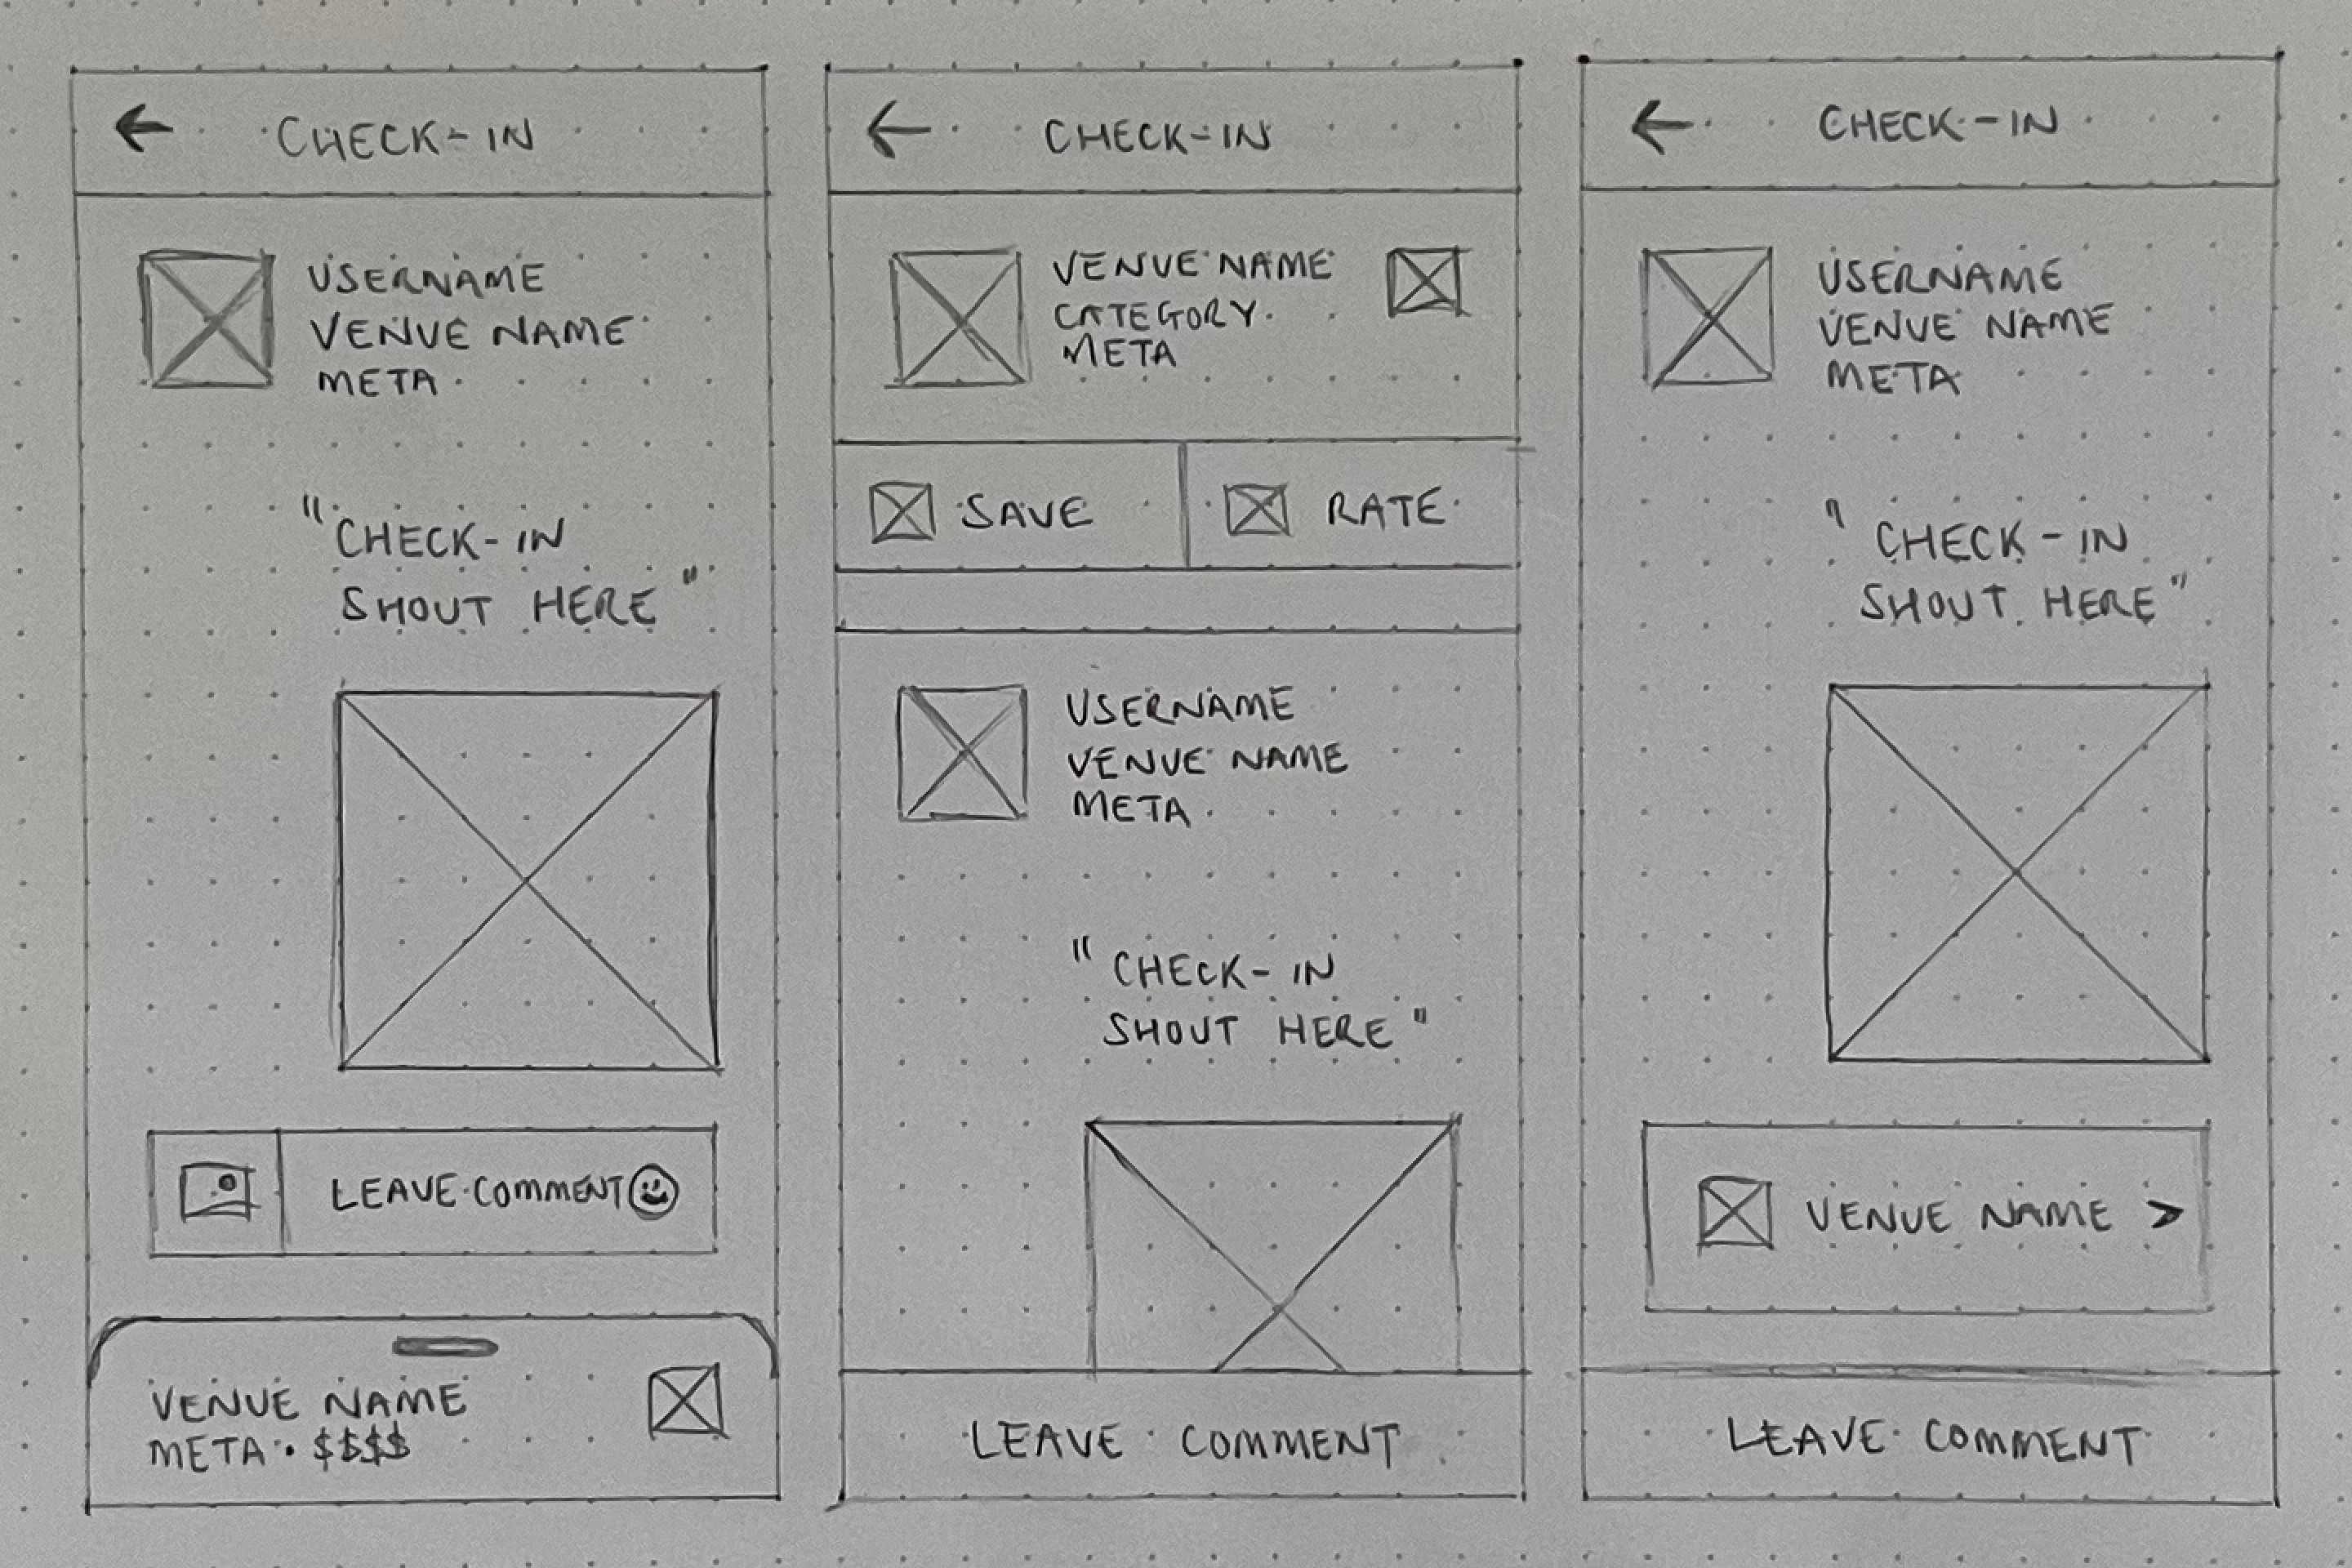 CHECK-IN
USERNAME
VENUE NAME
META
"CHECK-IN
SHOUT HERE"
LEAVE COMMENT
VENUE NAME
META • $$$$
CHECK-IN
VENUE NAME
CATEGORY
META
SAVE
RATE
USERNAME
VENUE NAME
META
"CHECK-IN
SHOUT HERE"
LEAVE COMMENT
CHECK-IN
USERNAME
VENUE NAME
META
"CHECK-IN
SHOUT HERE"
VENUE NAME >
LEAVE COMMENT